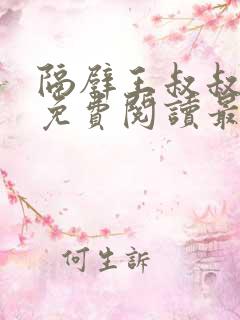 隔壁王叔叔
免費閱讀最
何生訴